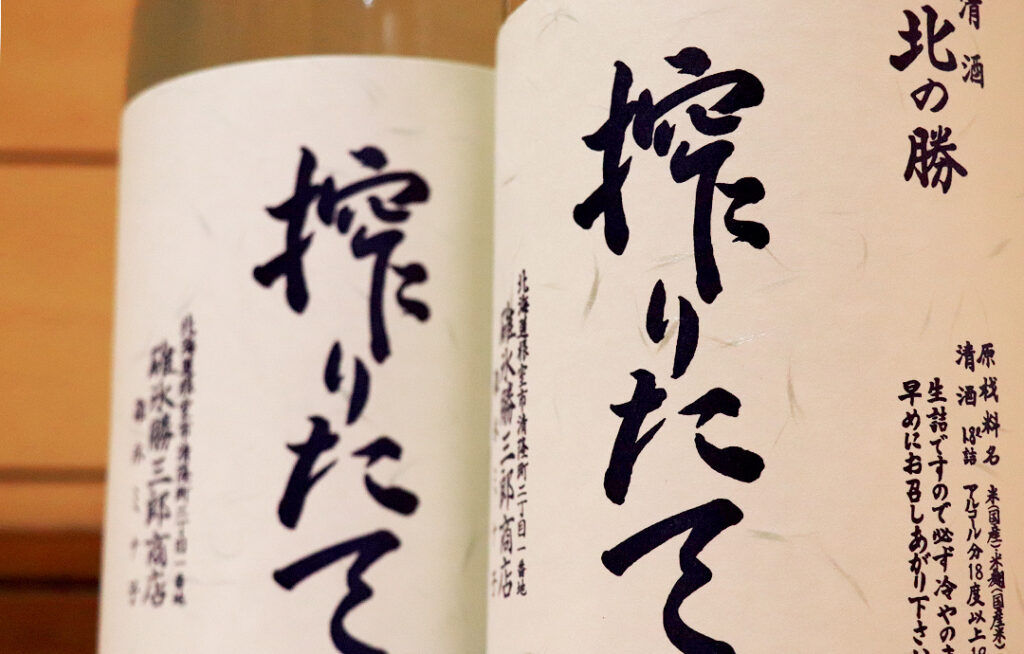 清酒
北の勝
搾りたて
原材料名 米(国産)・米麹(国産米)
清酒 1.8ℓ詰 アルコール分18度以上19
生詰ですので必ず冷やのま
早めにお召しあがり下さい
北海道根室市清隆町二丁目一番地
碓氷勝三郎商店
搾りたて
北海道根室市清隆町二丁目一番地
碓氷勝三郎商店